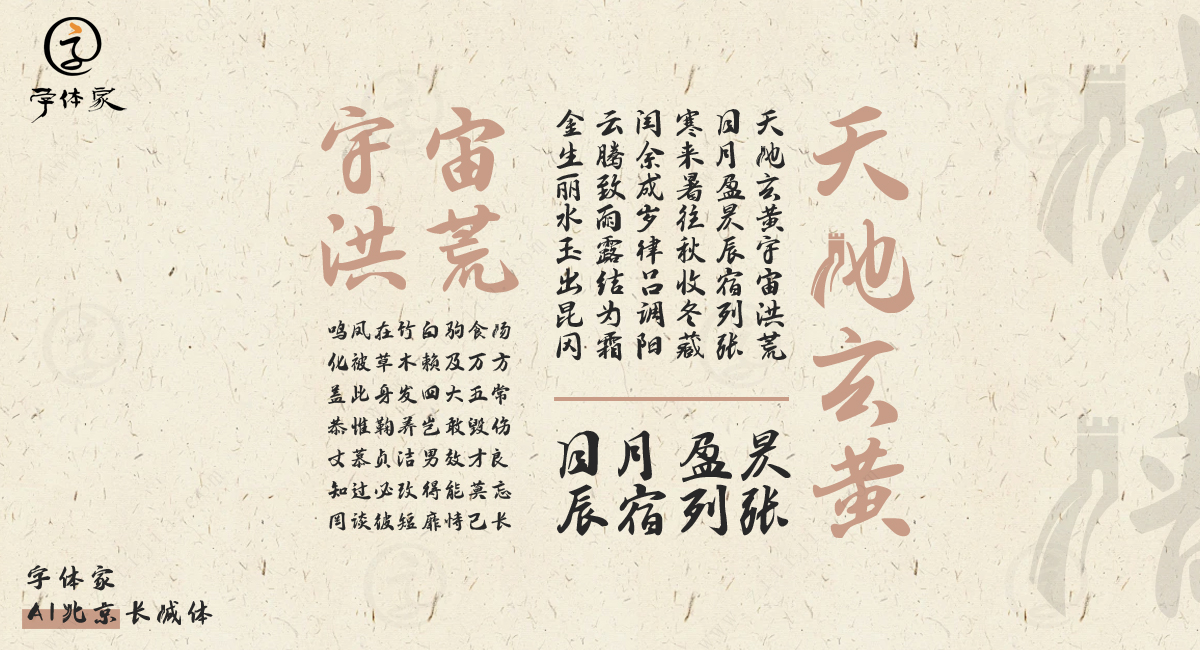 字体家
天地玄黄
天地玄黄宇宙洪荒
日月盈昃辰宿列张
寒来暑往秋收冬藏
闰余成岁律吕调阳
云腾致雨露结为霜
金生丽水玉出昆冈
日月盈昃
辰宿列张
宇宙
洪荒
鸣凤在竹白驹食场
化被草木赖及万方
盖此身发四大五常
恭惟鞠养岂敢毁伤
女慕贞洁男效才良
知过必改得能莫忘
罔谈彼短靡恃己长
字体家
AI北京长城体